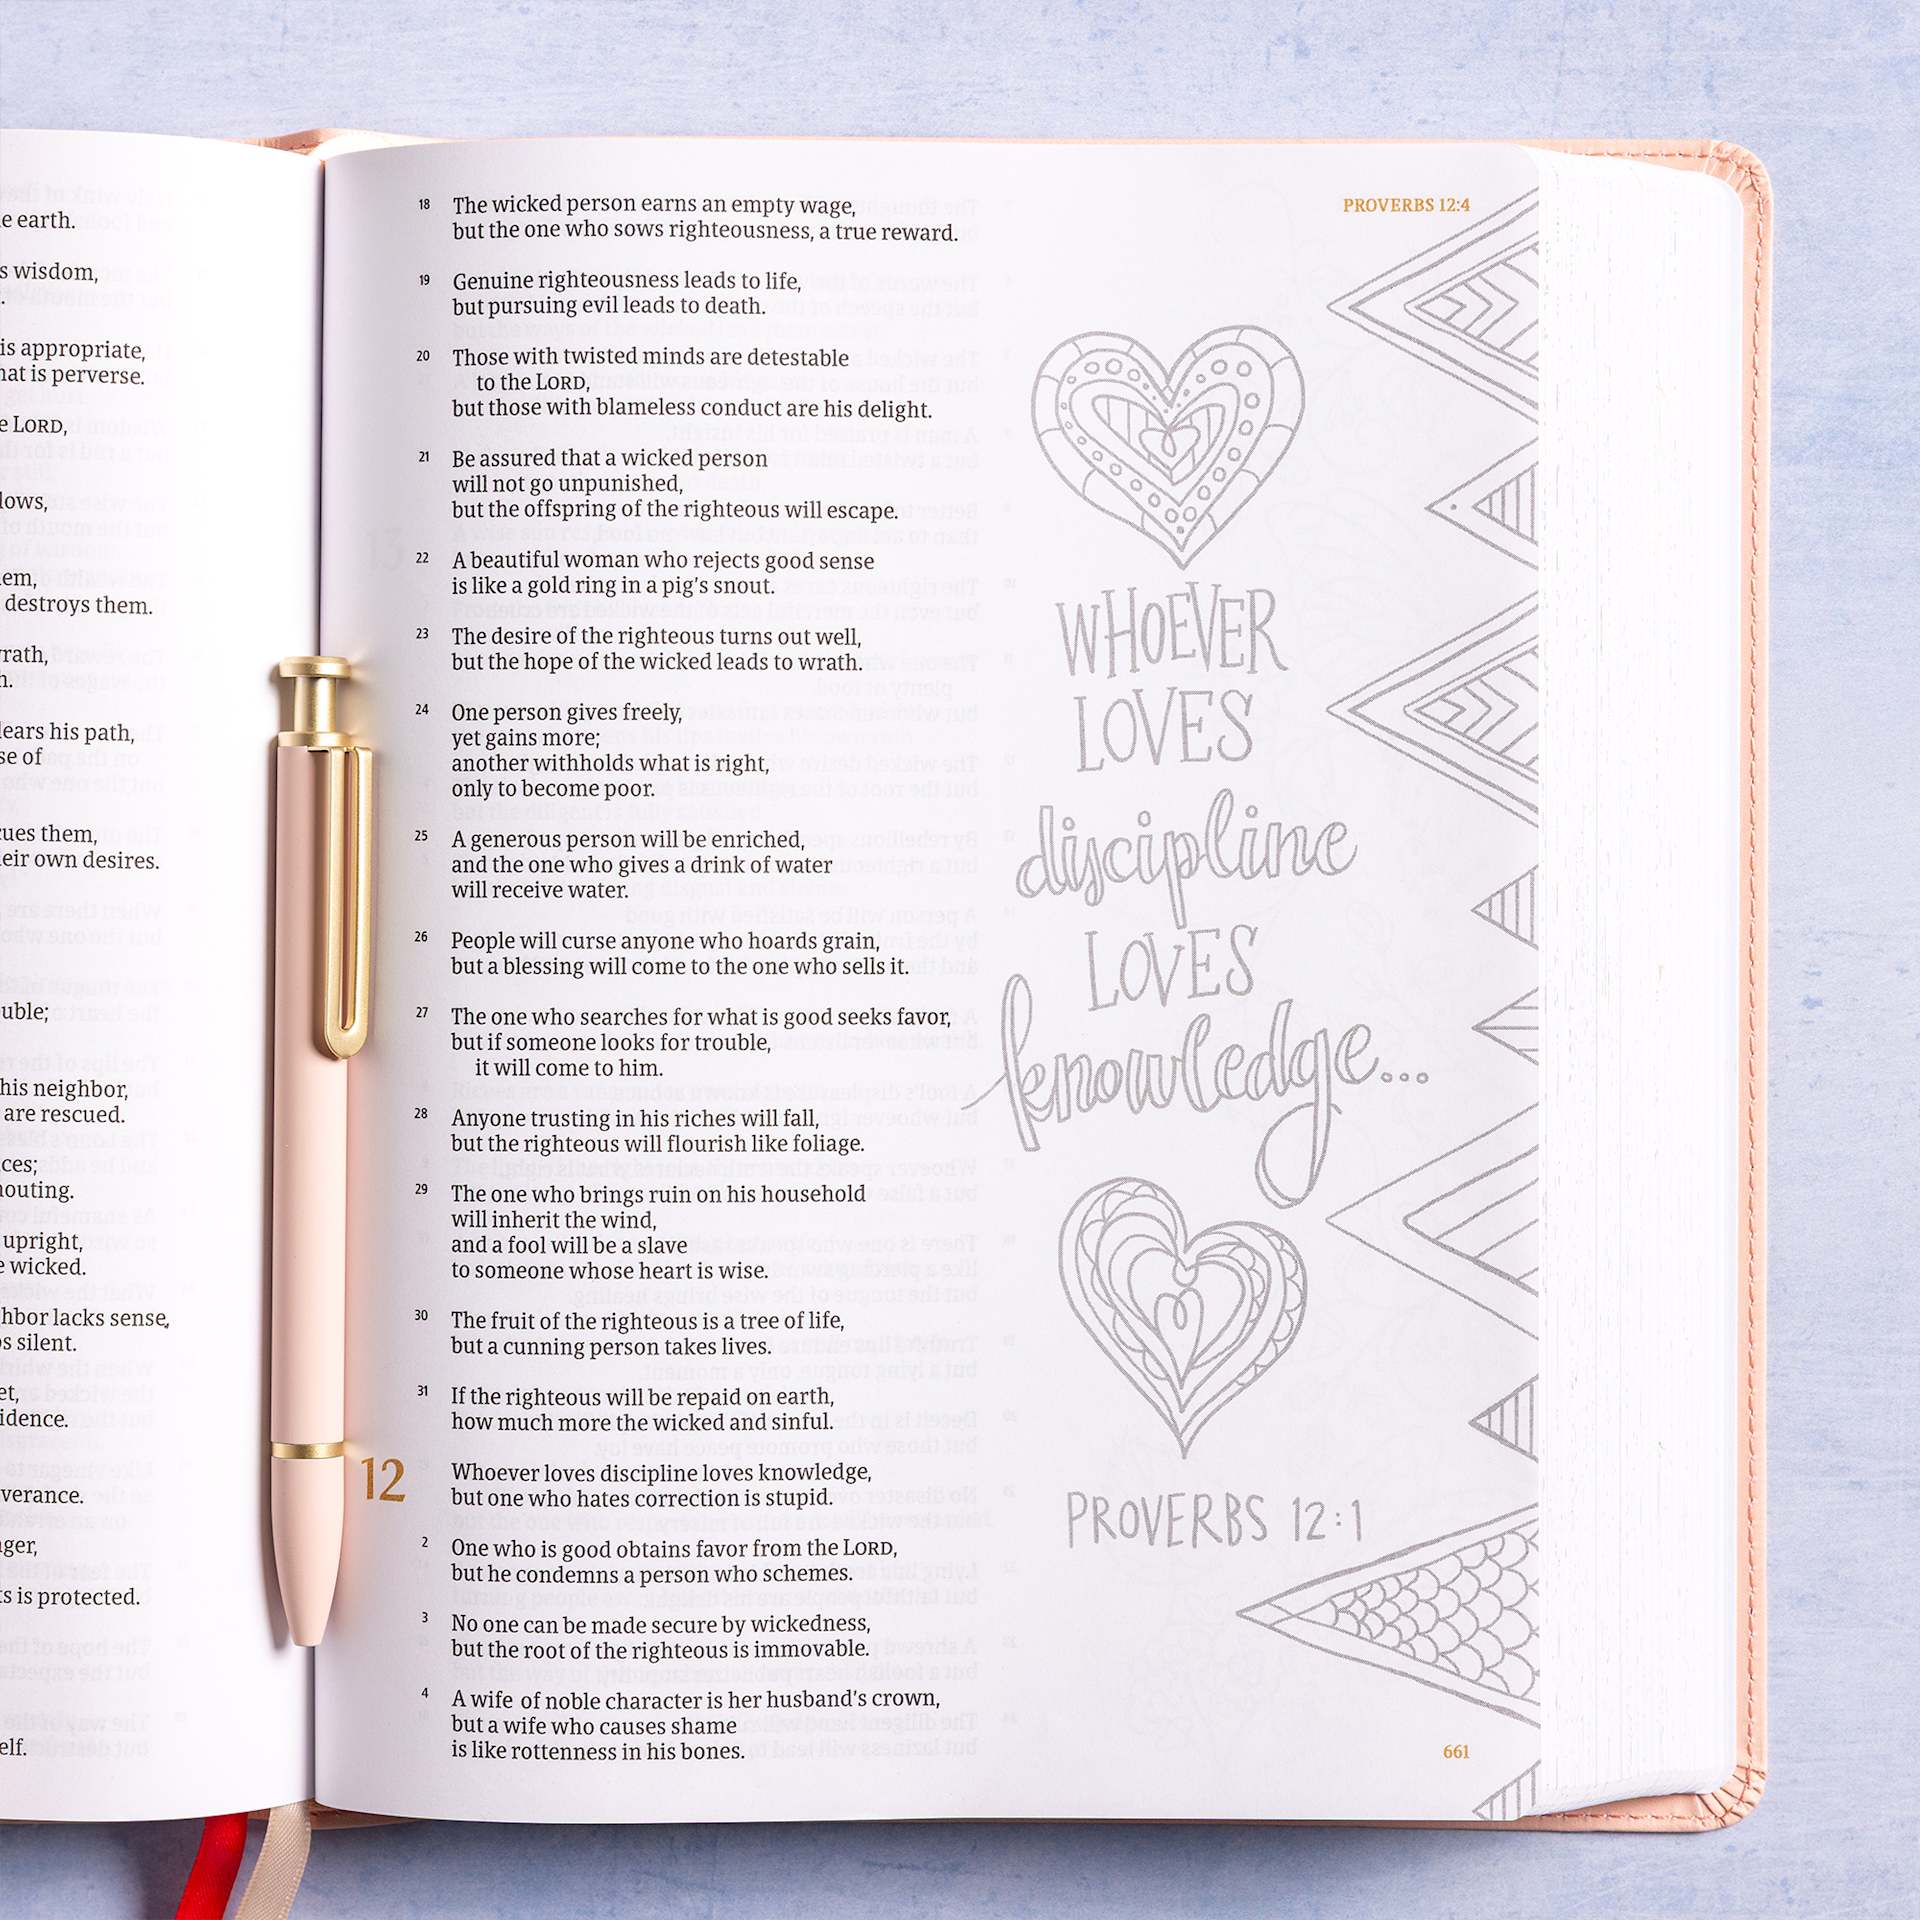 e earth.
s wisdom,
is appropriate,
hat is perverse.
e LORD,
lows,
em,
destroys them.
rath,
h.
lears his path,
se of
cues them,
eir own desires.
uble;
his neighbor,
are rescued.
ces;
houting.
upright,
e wicked.
hbor lacks sense,
s silent.
et,
idence.
verance.
ger,
ts is protected.
elf.
18 The wicked person earns an empty wage,
but the one who sows righteousness, a true reward.
19 Genuine righteousness leads to life,
but pursuing evil leads to death.
20 Those with twisted minds are detestable
to the LORD,
but those with blameless conduct are his delight.
21 Be assured that a wicked person
will not go unpunished,
but the offspring of the righteous will escape.
22 A beautiful woman who rejects good sense
is like a gold ring in a pig’s snout.
23 The desire of the righteous turns out well,
but the hope of the wicked leads to wrath.
24 One person gives freely,
yet gains more;
another withholds what is right,
only to become poor.
25 A generous person will be enriched,
and the one who gives a drink of water
will receive water.
26 People will curse anyone who hoards grain,
but a blessing will come to the one who sells it.
27 The one who searches for what is good seeks favor,
but if someone looks for trouble,
it will come to him.
28 Anyone trusting in his riches will fall,
but the righteous will flourish like foliage.
29 The one who brings ruin on his household
will inherit the wind,
and a fool will be a slave
to someone whose heart is wise.
30 The fruit of the righteous is a tree of life,
but a cunning person takes lives.
31 If the righteous will be repaid on earth,
how much more the wicked and sinful.
12 Whoever loves discipline loves knowledge,
but one who hates correction is stupid.
2 One who is good obtains favor from the LORD,
but he condemns a person who schemes.
3 No one can be made secure by wickedness,
but the root of the righteous is immovable.
4 A wife of noble character is her husband’s crown,
but a wife who causes shame
is like rottenness in his bones.
PROVERBS 12:4
WHOEVER
LOVES
discipline
LOVES
knowledge...
PROVERBS 12:1
661